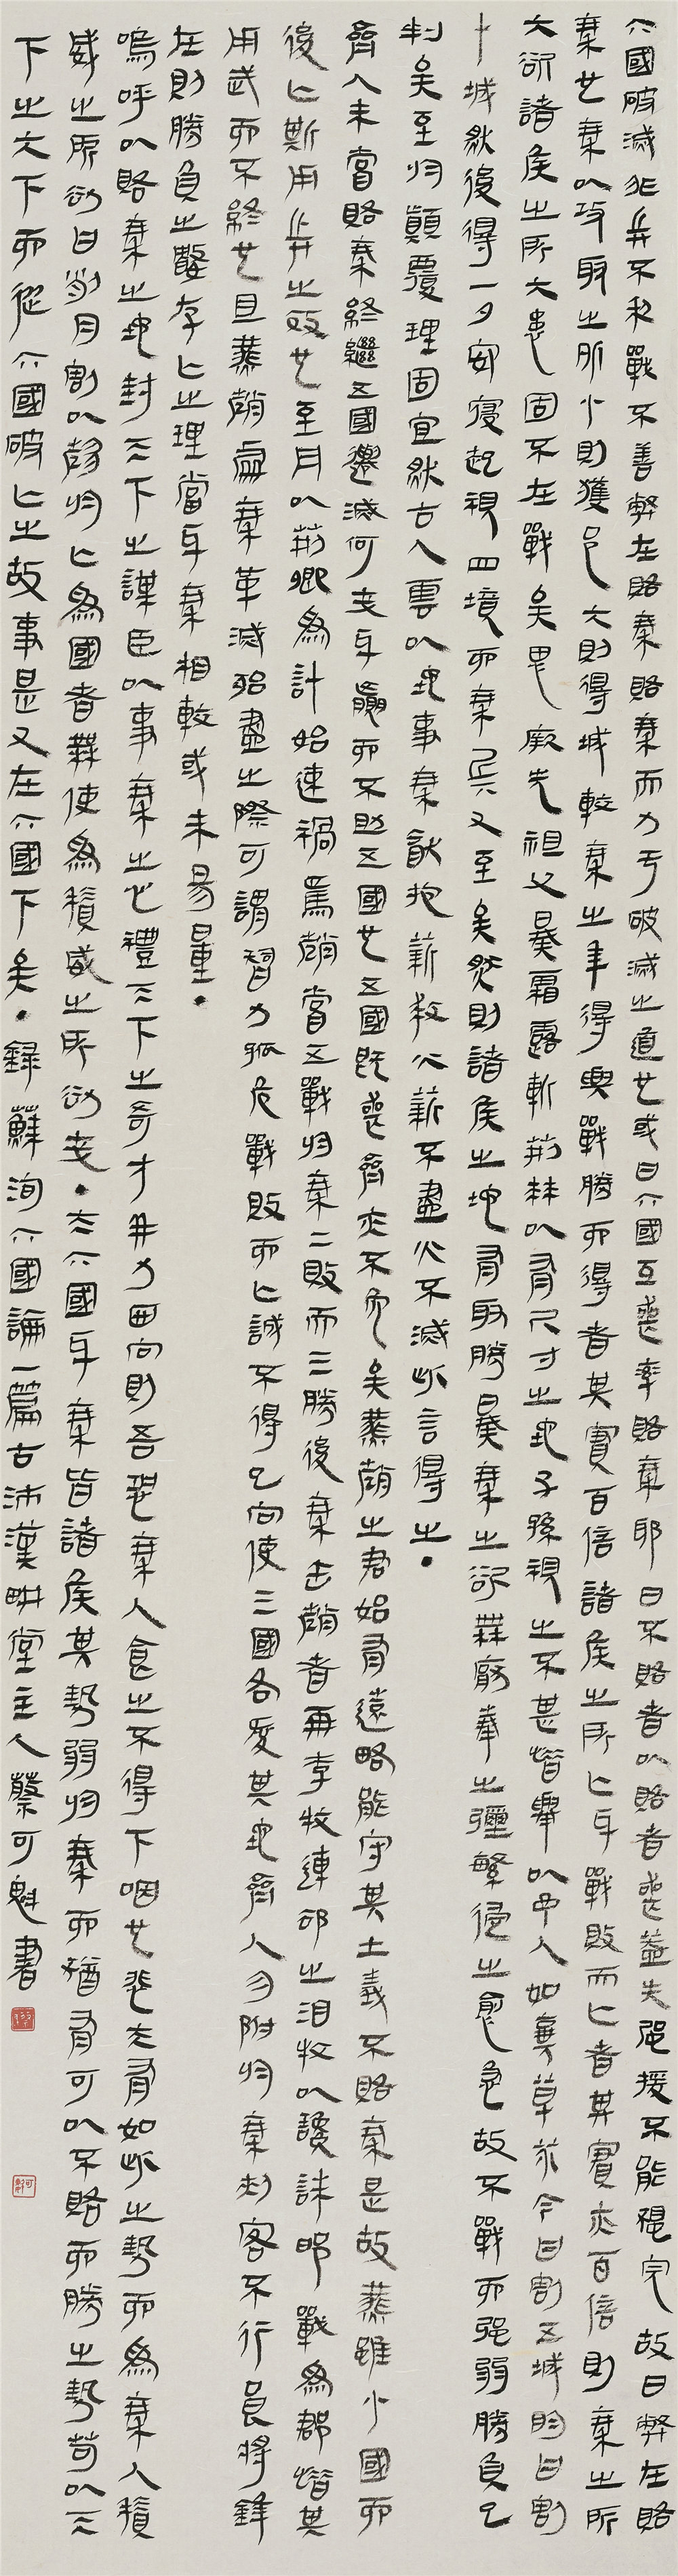 六國破滅非兵不利戰不善弊在賂秦賂秦而力亏破滅之道也或曰六國互喪率賂秦耶曰不賂者以賂者喪蓋失强援不能獨完故曰弊在賂
秦也秦以攻取之所小則獲邑大則得城較秦之所得與戰勝而得者其實百倍諸侯之所亡與戰敗而亡者其實亦百倍則秦之所
大欲諸侯之所大患固不在戰矣思厥先祖父暴霜露斬荆棘以有尺寸之地子孫視之不甚惜舉以予人如棄草芥今日割五城明日割
十城然後得一夕安寢起視四境而秦兵又至矣然則諸侯之地有取勝暴秦之欲無厭奉之彌繁侵之愈急故不戰而强弱勝負已
判矣至於顛覆理固宜然古人雲以地事秦猶抱薪救火薪不盡火不滅此言得之.
齊人未嘗賂秦終繼五國遷滅何哉與嬴而不助五國也五國既喪齊亦不免矣燕趙之君始有遠略能守其土義不賂秦是故燕雖小國而
後亡斯用兵之效也至丹以荆卿為計始速禍焉趙嘗五戰於秦二敗而三勝後秦擊趙者再李牧連却之洎牧以讒誅邯戰為郡惜其
用武而不終也且燕趙處秦革滅殆盡之際可謂智力孤危戰敗而亡誠不得已向使三國各愛其地齊人勿附於秦刺客不行良將鋒
在則勝負之數存亡之理當與秦相較或未易量.
嗚呼以賂秦之地封天下之謀臣以事秦之心禮天下之奇才并力西向則吾恐秦人食之不得下咽也悲夫有如此之勢而為秦人積
威之所劫日削月割以趨於亡為國者無使為積威之所劫哉.夫六國與秦皆諸侯其勢弱於秦而猶有可以不賂而勝之勢苟以天
下之大下而從六國破亡之故事是又在六國下矣.錄蘇洵六國論一篇古沛漢畊堂主人蔡可魁書